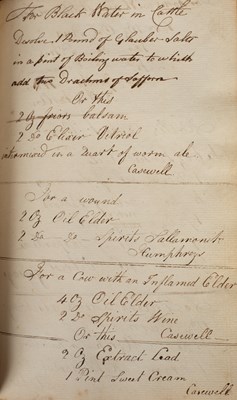 For Black Water in Cattle
Desolve 1 Pound of Glauber Salts
in a pint of Boiling water to which
add two Drachms of Saffron
Or this
2 Oz friars balsam
2 Do Elixir Vitriol
intromixed in a Quart of worm ale
Casewell
For a wound
2 Oz Oil Elder
2 Do Do Spirits Sallamonit
Humphreys
For a Cow with an Inflamed Elder
4 Oz Oil Elder
2 Do Spirits Wine
Or this Casewell
2 Oz Extract Lead
1 Pint Sweet Cream
Casewell